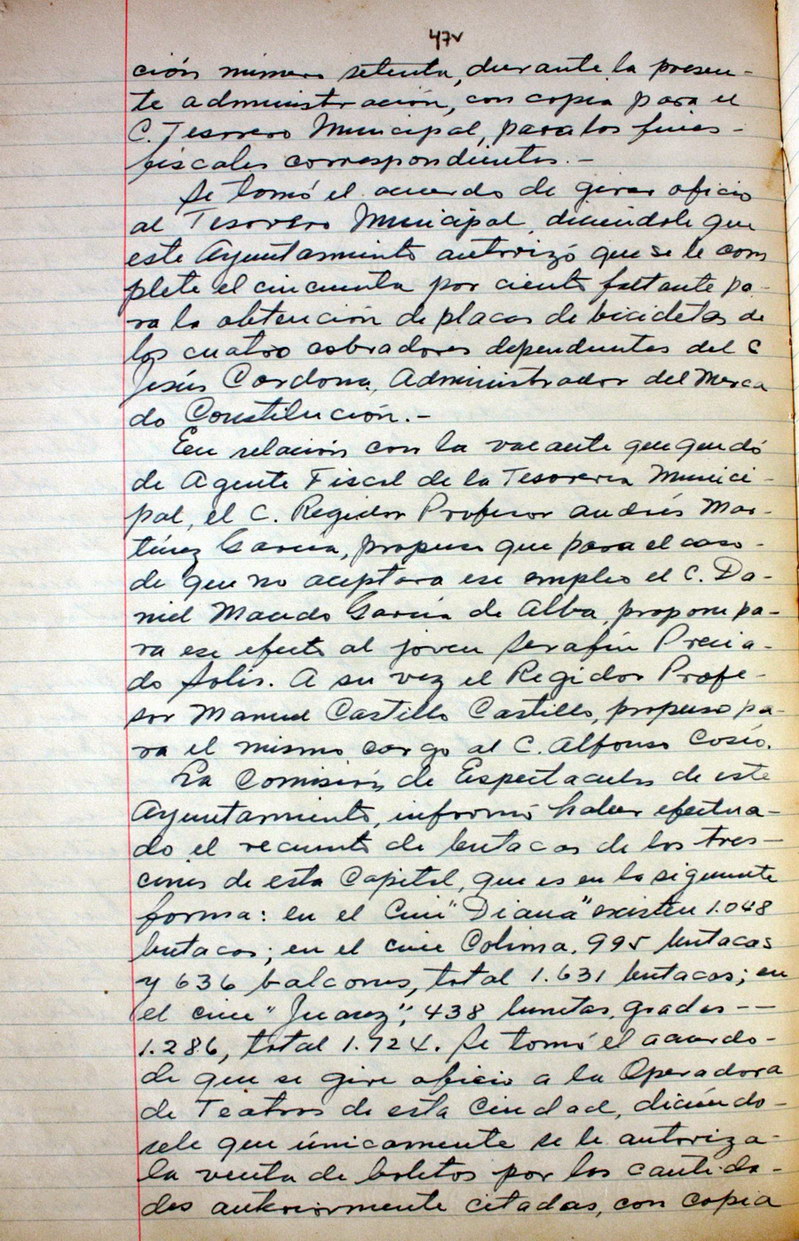 47v
ción número setenta, durante la presen-
te administración, con copia para el
C. Tesorero Municipal, para los fines-
fiscales correspondientes.-
Se tomó el acuerdo de girar oficio
al Tesorero Municipal, diciéndole que
este Ayuntamiento autorizó que se le com
plete el cincuenta por ciento faltante pa-
ra la obtención de placas de bicicletas de
los cuatro cobradores dependientes del C
Jesús Cardona, Administrador del Merca
do Constitución.-
En relación con la vacante que quedó
de Agente Fiscal de la Tesorería Munici-
pal, el C. Regidor Profesor Andrés Mar-
tínez García, propuso que para el caso-
de que no aceptara ese empleo el C. Da-
niel Macedo García de Alba, propone pa-
ra ese efecto al joven Serafín Precia-
do Solís. A su vez el Regidor Profe-
sor Manuel Castillo Castillo, propuso pa-
ra el mismo cargo al C. Alfonso Cosío.
La Comisión de Espectaculos de este
Ayuntamiento, informó haber efectua-
do el recuento de butacas de los tres-
cines de esta Capital, que es en la siguiente
forma: en el Cine "Diana" existen 1.048
butacas; en el cine Colima, 995 butacas
y 636 balcones, total 1.631 butacas; en
el cine "Juarez", 438 lunetas, gradas --
1.286, total 1.724. Se tomó el acuerdo-
de que se gire oficio a la Operadora
de Teatros de esta Ciudad, diciéndo-
sele que únicamente se le autoriza-
la venta de boletos por las cantida-
des anteriormente citadas, con copia